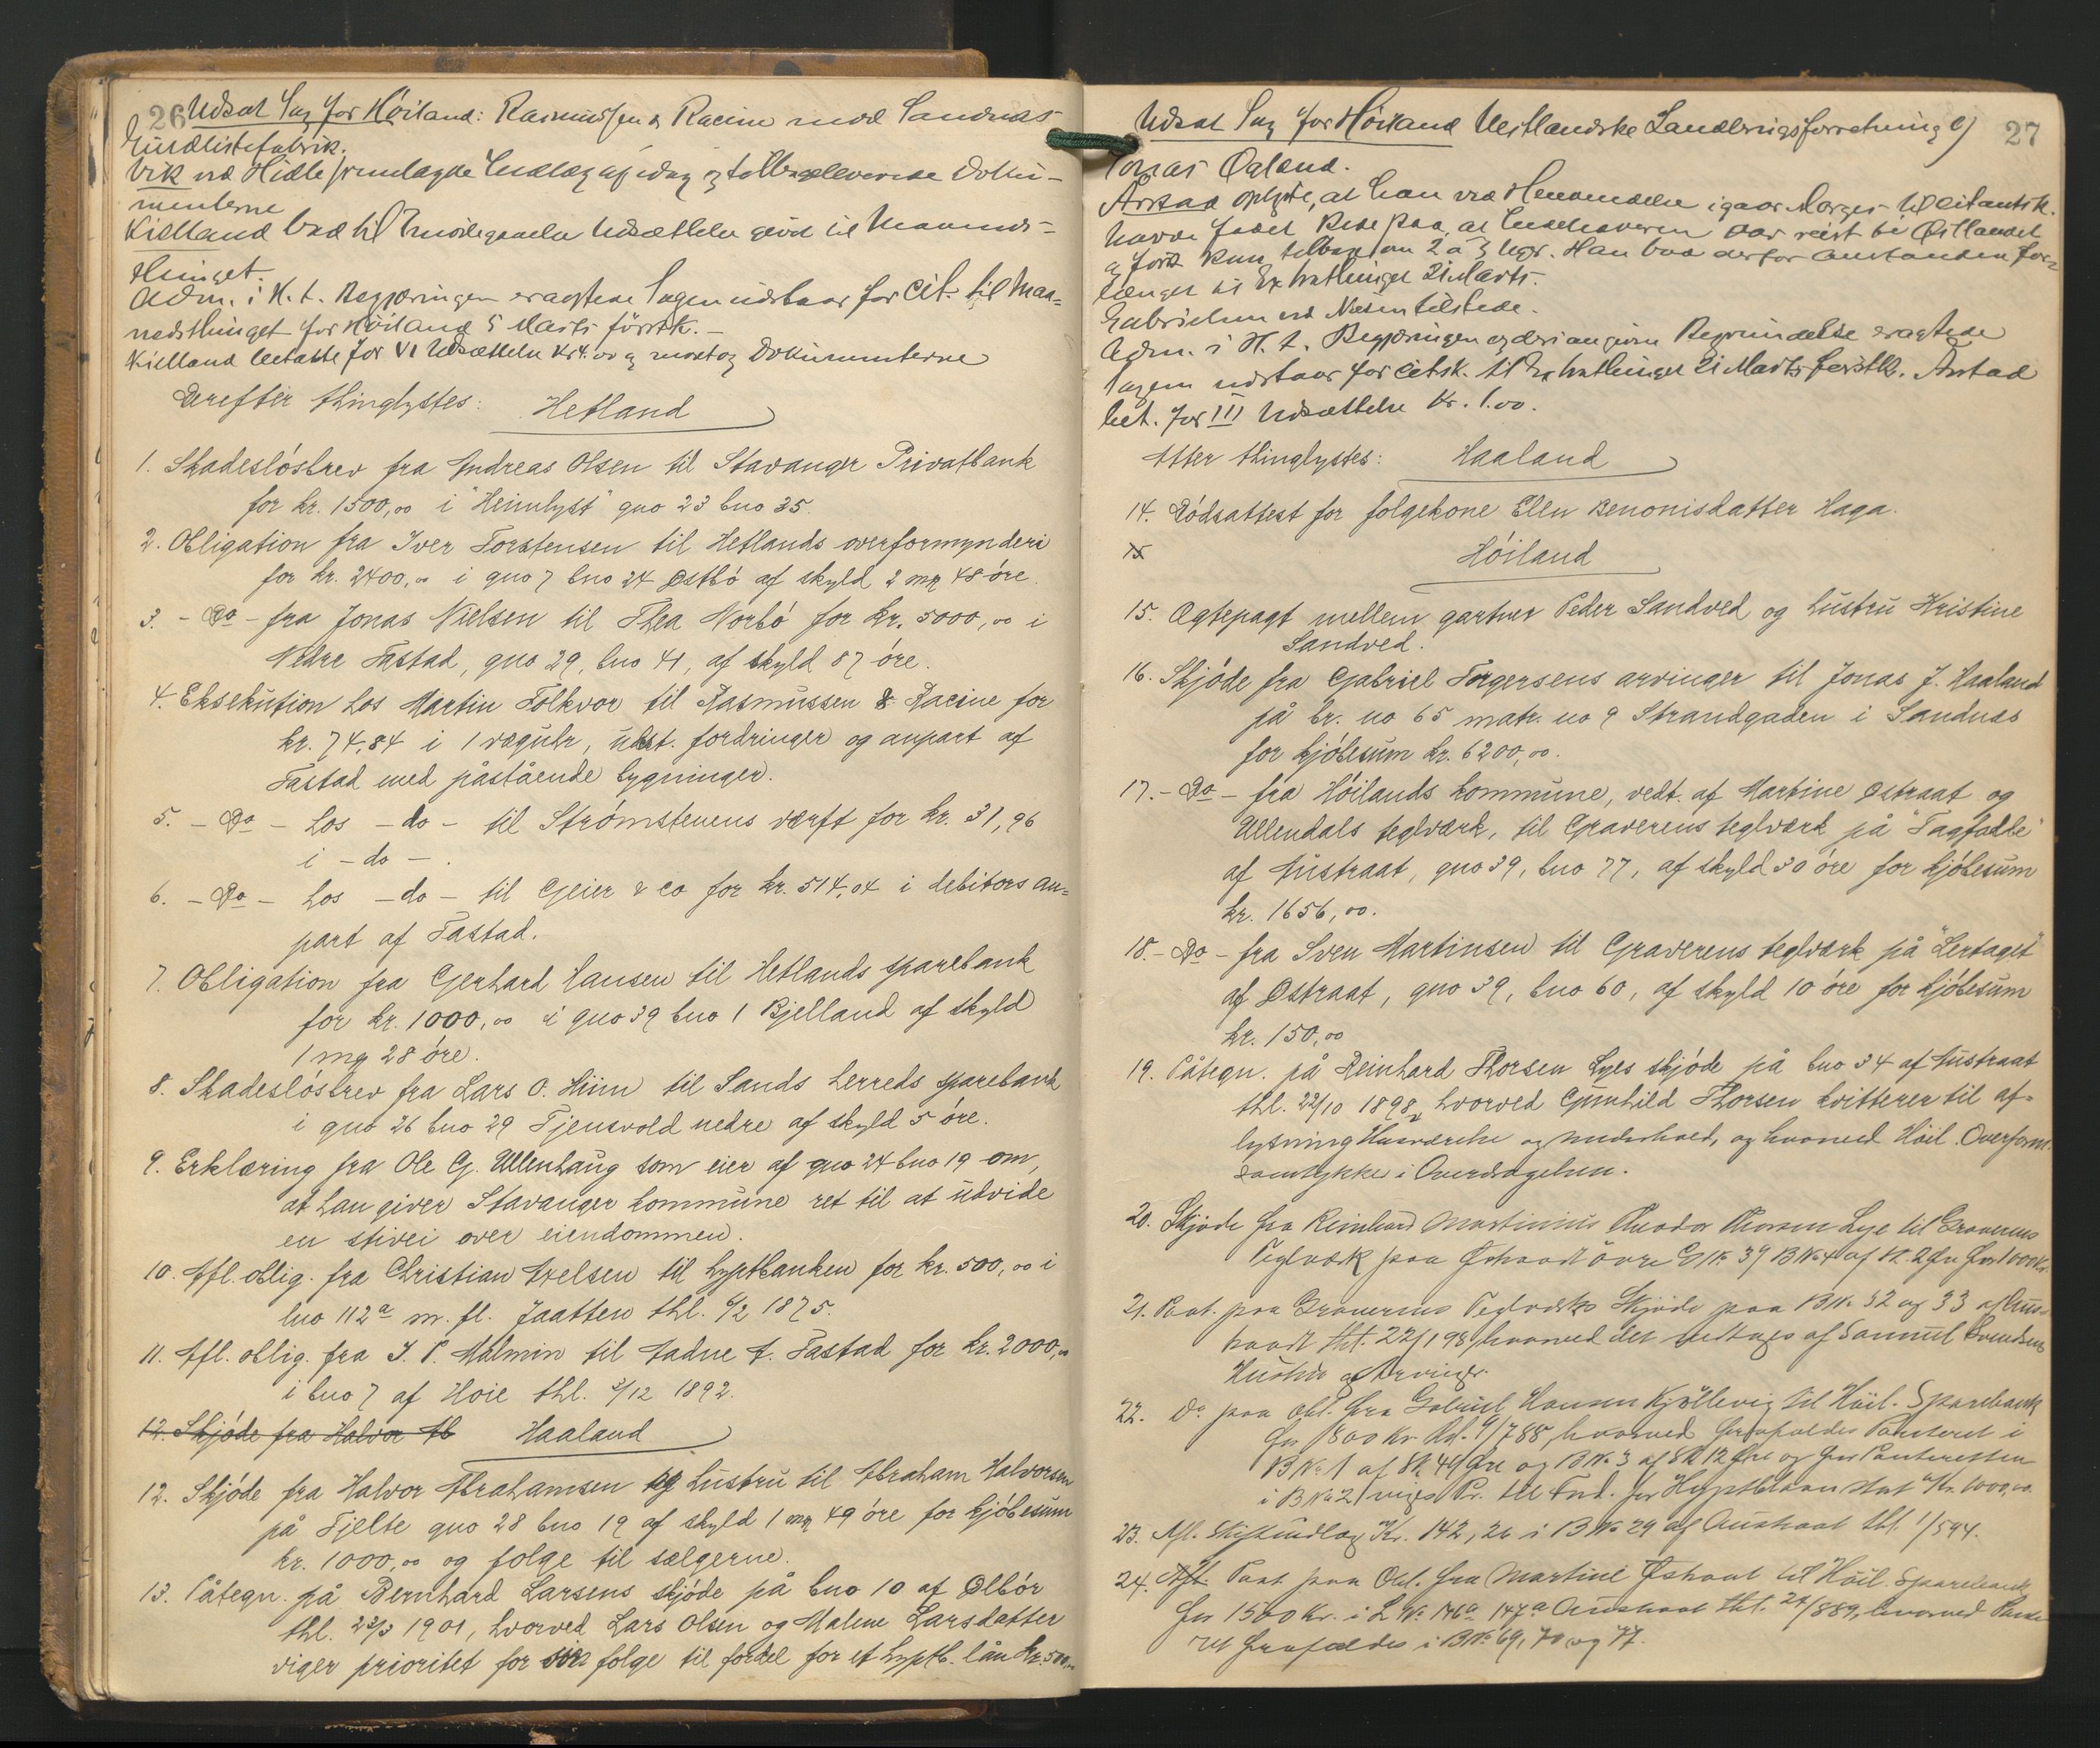 26 Udsat Sag for Höiland: Rasmussen & Racine mod Sandnæs
Guldlistefabrik.
Vik ved Hidle fremlagde Indlæg af idag og tilbageleverede Doku-
menterne
Kielland bad til Imødegaaelse Udsættelse givet til Maaneds-
thinget.
Adm. i H. t. Begjæringen eragtede Sagen udstaar for Cit. til Maa-
nedsthinget for Höiland 5 Marts förstk. -
Kielland betalte for VI Udsættelse Kr 4.00 og modtog Dokumenterne
Derefter thinglystes: Hetland
1. Skadeslósbrev fra Andreas Olsen til Stavanger Privatbank
for kr. 1500,00 i "Heimlyst" gno 23 bno 35.
2. Obligation fra Iver Torstensen til Hetlands overformynderi
for kr. 2400,00 i gno 7 bno 24 Østbó af skyld 2 mk 48 óre.
3. - Do - fra Jonas Nielsen til Thea Norbó for kr. 5000,00 i
Nedre Tastad, gno 29, bno 41, af skyld 87 óre.
4. Eksekution hos Martin Folkvor til Rasmussen & Racine for
kr. 74,84 i 1 væguhr, udst. fordringer og anpart af
Tastad med påstående bygninger.
5. - Do - hos - do - til Strómstenens værft for kr. 31,96
i - do - .
6. - Do - hos - do - til Geier & Co for kr. 514,04 i debitors an-
part af Tastad.
7. Obligation fra Gerhard Hansen til Hetlands sparebank
for kr. 1000,00 i gno 39 bno 1 Bjelland af skyld
1 mg 28 óre.
8. Skadeslósbrev fra Lars O. Hiim til Sands herreds sparebank
i gno 26 bno 29 Tjensvold nedre af skyld 5 óre.
9. Erklæring fra Ole G. Ullenhaug som eier af gno 24 bno 19 om,
at han giver Stavanger kommune ret til at udvide
en stivei over eiendommen.
10. Afl. oblig. fra Christian Axelsen til hyptbanken for kr. 500,00 i
lno 112a m. fl. Jaatten thl. 6/2 1875.
11. Afl. oblig. fra J. P. Malmin til Aadne A. Tastad for kr. 2000,00
i bno 7 af Hoie thl. 5/12 1892.
12. Skjóde fra Halvor Ab Haaland
12. Skjóde fra Halvor Abrahamsen og hustru til Abraham Halvorsen
på Tjelte gno 28 bno 19 af skyld 1 mk 49 óre for kjóbesum
kr. 1000,00 og folge til sælgerne.
13. Påtegn. på Bernhard Larsens skjóde på bno 10 af Ølbór
thl. 23/3 1901, hvorved Lars Olsen og Malene Larsdatter
viger prioritet for sin folge til fordel for et hyptb. lån kr. 500,00
Udsat Sag for Höiland Vestlandske Landbrugsforretning c/ 27
Jonas Øgland.
Årstad oplyste, at han ved Henvendelse igaar Morges til Citantsk.
havde faaet Rede paa, at Indehaveren var reist til Østlandet
og först kom tilbage om 2 à 3 Uger. Han bad derfor Anstanden for-
længet til Extrathinget 21 Marts.
Gabrielsen ved Næsen tilstede.
Adm. i H. t. Begjæringen og deri angivne Begrundelse eragtede
Sagen udstaar for Citsk. til Extrathinget 21 Marts førstk. Årstad
bet. for III Udsættelse Kr. 1.00.
Atter thinglystes: Haaland
14. Dódsattest for folgekone Elen Benonisdatter Haga.
15 Hóiland
15. Ægtepagt mellem gartner Peder Sandved og hustru Kristine
Sandved.
16. Skjóde fra Gabriel Torgersens arvinger til Jonas J. Haaland
på br. no 65 matr. no 9 Strandgaden i Sandnæs
for kjóbesum kr. 6200,00.
17. - Do - fra Hóilands kommune, vedt. af Martine Østraat og
Ullendals teglværk, til Graverens teglværk på "Tagfalle"
af Austraat, gno 39, bno 77, af skyld 30 óre for kjóbesum
kr. 1656,00.
18. - Do - fra Sven Martinsen til Graverens teglværk på "Lertaget"
af Østraat, gno 39, bno 60, af skyld 10 óre for kjóbesum
kr. 150,00
19. Påtegn. på Reinhard Thorsen Lyes skjóde på bno 34 af Austraat
thl. 22/10 1898, hvorved Gunhild Thorsen kvitterer til af-
lysning Husværelse og Underhold, og hvorved Höil. Overform.
samtykker i Overdragelsen.
20. Skjöde fra Reinhard Martinius Theodor Thorsen Lye til Graverens
Teglværk paa Østraadt övre G No 39 B No 4 af Sk. 2 Øre for 1000 Kr.
21. Paat. paa Graverens Teglværks Skjöde paa B No 32 og 33 af Aus-
traadt thl. 22/1 98, hvorved det vedtages af Samuel Svendsens
Hustru og Arvinger.
22. Do paa Obl. fra Gabriel Hansen Kjöllevig til Höil. Sparebank
for 1800 Kr. thl. 9/7 88, hvorved frafaldes Panteret i
B No 1 af Sk 49 Øre og B No 3 af Sk 12 Øre og for Panteretten
i B No 2 viges Pr. til Ford. for Hypthlaan stort Kr. 1000,00.
23. Afl. Skifteudlæg Kr. 142,26 i B No 29 af Austraat thl. 1/5 94.
24. Afl. Paat. paa Obl. fra Martine Østraat til Höil. Sparebank
for 1500 Kr. i L No 146a 147a Austraat thl. 24/8 89, hvorved Pante-
ret frafaldes i B No 69, 70 og 77.